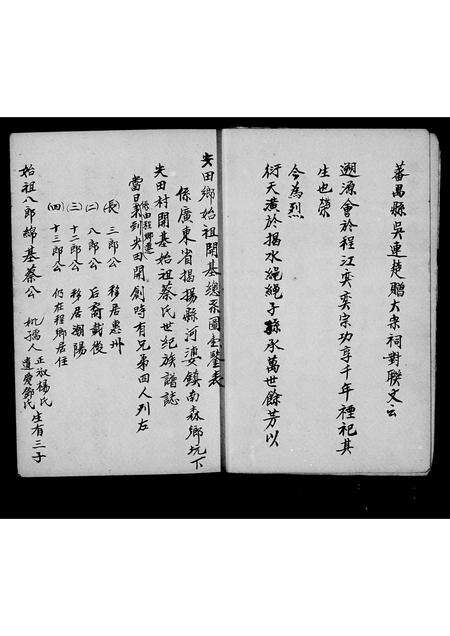 蕃禺縣吳連楚贈大宗祠對聯文云
遡源會於程江奕奕宗功享千年禋祀其
生也榮
今為烈
衍天潢於揭水繩繩子孫永萬世餘芳以
尖田鄉始祖開基總系圖全鑒表
係廣東省揭揚縣河婆鎮南森鄉坑下
尖田村開基始祖蔡氏世紀族譜誌
係由程鄉遷
當日來到尖田開創時有兄弟四人列左
(長) 三郎公 移居惠州
(二) 八郎公 后裔載後
(三) 十二郎公 移居潮陽
(四) 十三郎公 仍在程鄉居住
始祖八郎綿基蔡公 正淑楊氏 生有三子
遺愛鄧氏